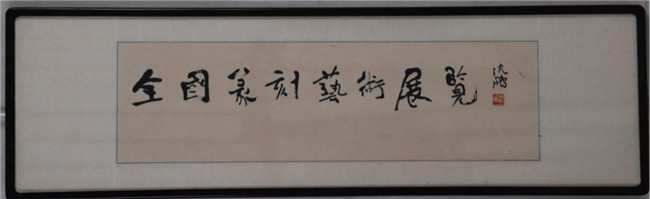 全國篆刻藝術展覽
沈鹏